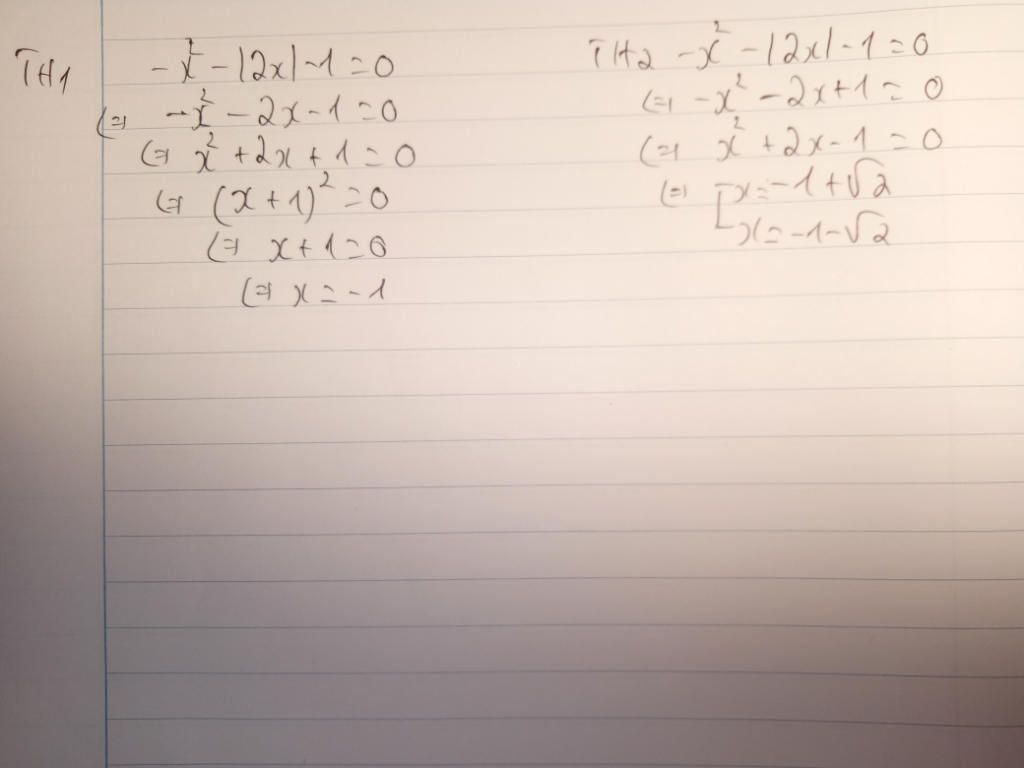 TH1 -x² - |2x| - 1 = 0
(=) -x² - 2x - 1 = 0
(=) x² + 2x + 1 = 0
(=) (x + 1)² = 0
(=) x + 1 = 0
(=) x = -1
TH2 -x² - |2x| - 1 = 0
(=) -x² - 2x + 1 = 0
(=) x² + 2x - 1 = 0
(=) [x = -1 + √2
x = -1 - √2